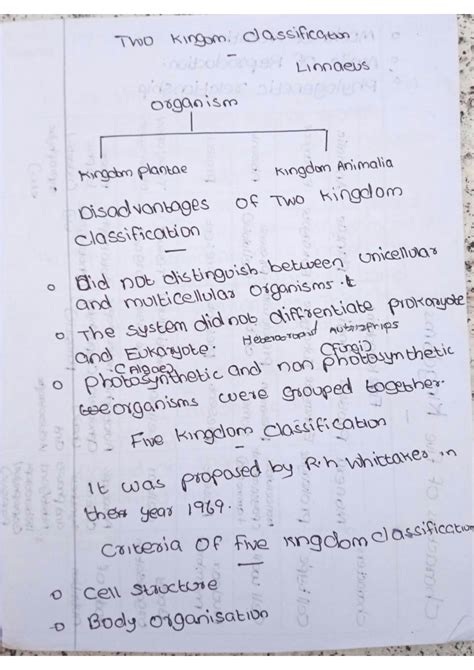 Two Kingom classification
Linnaeus
organism
Kingdom plantae
Kingdom Animalia
Disadvantages of Two Kingdom
classification
Did not distinguish between unicellular
and multicellular organisms.
The system did not diffrentiate prokaryote
and Eukaryote.
(Algae)
(fungi)
photosynthetic and non photosynthetic
organisms were grouped together.
Five kingdom classification
It was proposed by R.h Whittaker in
the year 1969.
Criteria of five kingdom classification
Cell structure
Body organisation